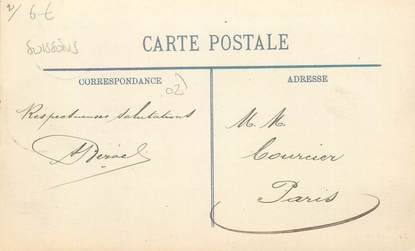 2/ 6-E
SOISSONS
CARTE POSTALE
CORRESPONDANCE
ADRESSE
02)
Respectueuses salutations
M. M.
Courcier
Paris